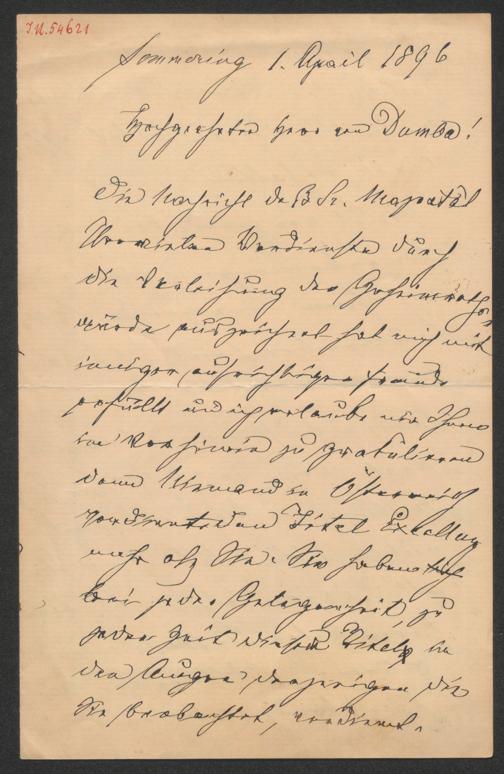 J.N. 54621
Semmering 1. April 1896
Hochgeehrter Herr von Dumba!
Die Nachricht daß Se. Majestät
Verdienste durch
die Verleihung der Geheimraths
würde ausgezeichnet hat mich mit
inniger, aufrichtiger Freude
erfüllt und ich erlaube mir Ihnen
im zu gratulieren
denn Niemand in Österreich
verdiente den Titel Excellenz
mehr als Sie. Sie haben
bei jeder Gelegenheit, zu
jeder Zeit diesen Titel in
den Augen derjenigen die
Sie beobachtet, verdient.